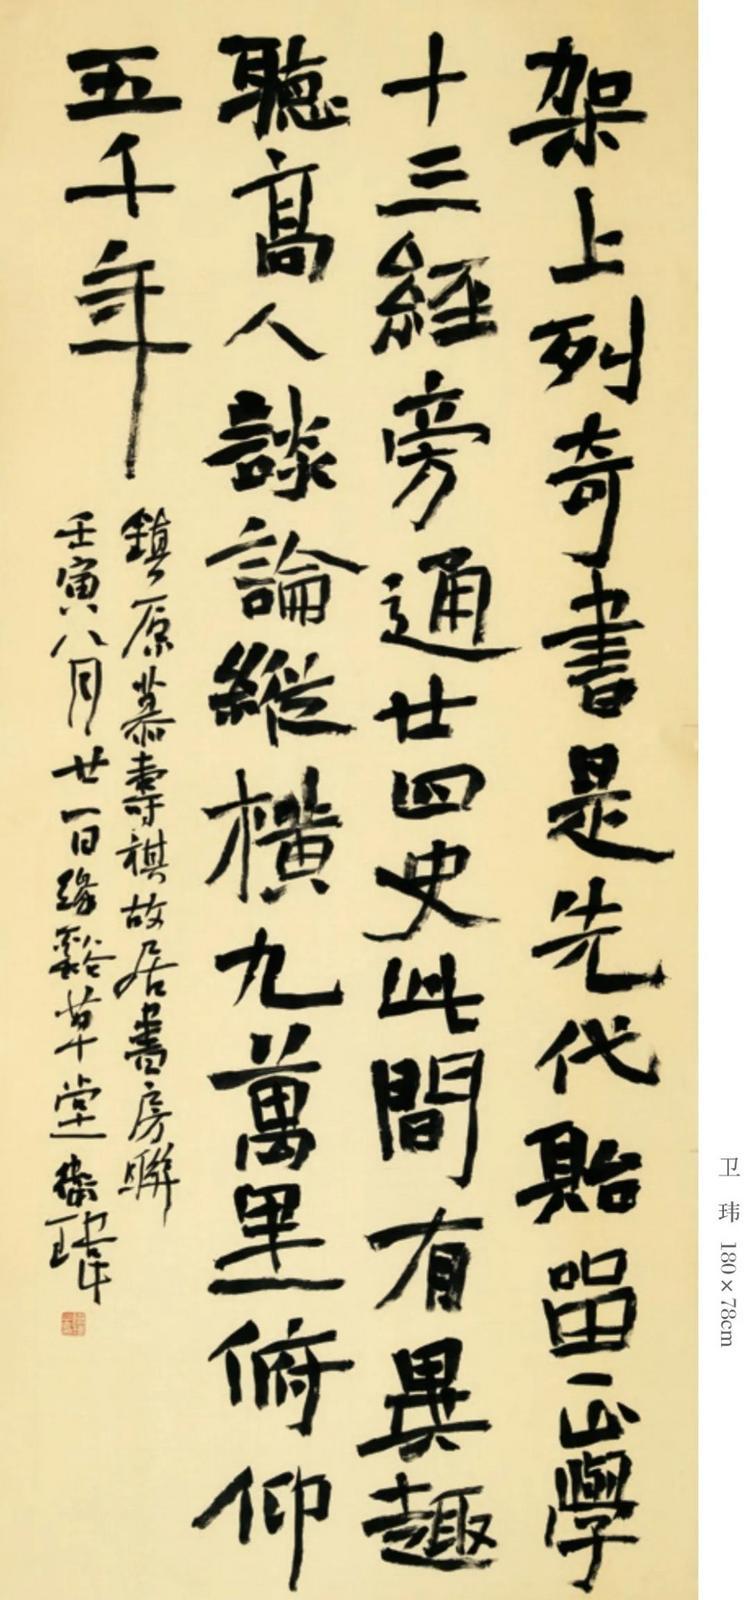 架上列奇書是先代貽畱正學
十三經旁通廿四史此間有異趣
聽高人談論縱橫九萬里俯仰
五千年
鎮原慕壽祺故居書房聯
壬寅八月廿一日緣谿草堂衛瑋
卫 玮 180×78cm